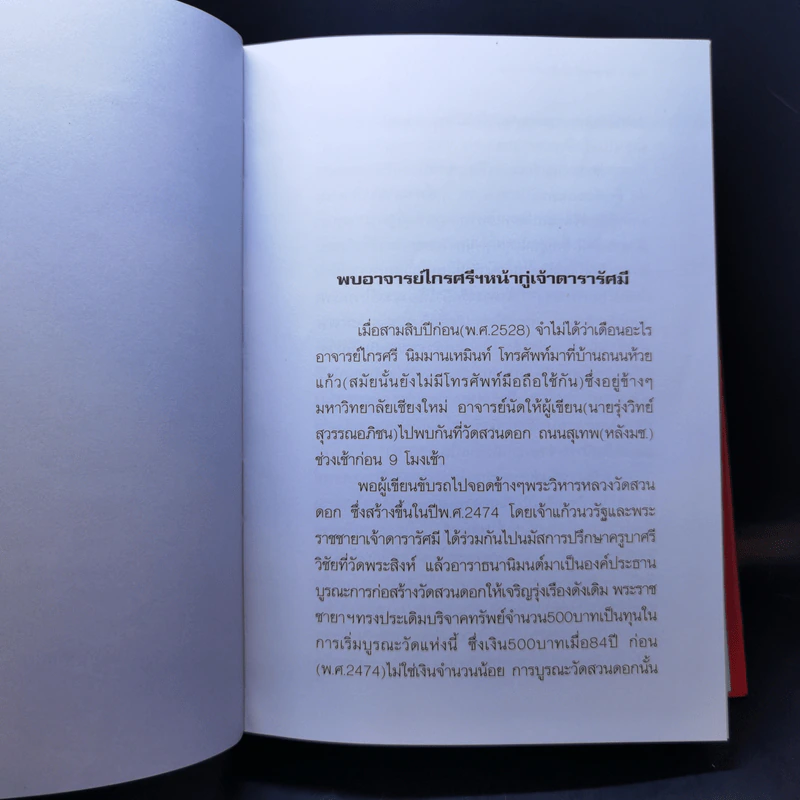 พบอาจารย์ไกรศรีฯหน้ากู่เจ้าดารารัศมี
เมื่อสามสิบปีก่อน(พ.ศ.2528) จำไม่ได้ว่าเดือนอะไร
อาจารย์ไกรศรี นิมมานเหมินท์ โทรศัพท์มาที่บ้านถนนห้วย
แก้ว(สมัยนั้นยังไม่มีโทรศัพท์มือถือใช้กัน)ซึ่งอยู่ข้างๆ
มหาวิทยาลัยเชียงใหม่ อาจารย์นัดให้ผู้เขียน(นายรุ่งวิทย์
สุวรรณอภิชน)ไปพบกันที่วัดสวนดอก ถนนสุเทพ(หลังมช.)
ช่วงเช้าก่อน 9 โมงเช้า
พอผู้เขียนขับรถไปจอดข้างๆพระวิหารหลวงวัดสวน
ดอก ซึ่งสร้างขึ้นในปีพ.ศ.2474 โดยเจ้าแก้วนวรัฐและพระ
ราชชายาเจ้าดารารัศมี ได้ร่วมกันไปนมัสการปรึกษาครูบาศรี
วิชัยที่วัดพระสิงห์ แล้วอาราธนานิมนต์มาเป็นองค์ประธาน
บูรณะการก่อสร้างวัดสวนดอกให้เจริญรุ่งเรืองดังเดิม พระราช
ชายาฯทรงประเดิมบริจาคทรัพย์จำนวน500บาทเป็นทุนใน
การเริ่มบูรณะวัดแห่งนี้ ซึ่งเงิน500บาทเมื่อ84ปี ก่อน
(พ.ศ.2474)ไม่ใช่เงินจำนวนน้อย การบูรณะวัดสวนดอกนั้น